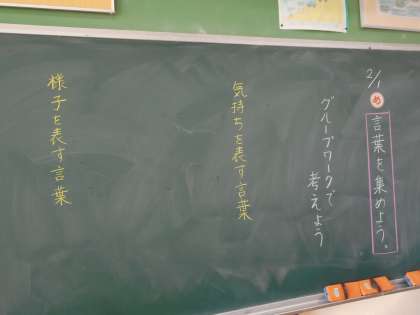 2/1
め 言葉を集めよう。
グループワークで
考えよう
気持ちを表す言葉
様子を表す言葉